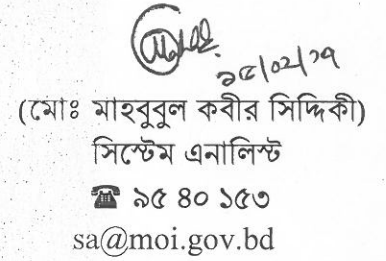 (মোঃ মাহবুবুল কবীর সিদ্দিকী)
সিস্টেম এনালিস্ট
☎ ৯৫ ৪০ ১৫৩
sa@moi.gov.bd